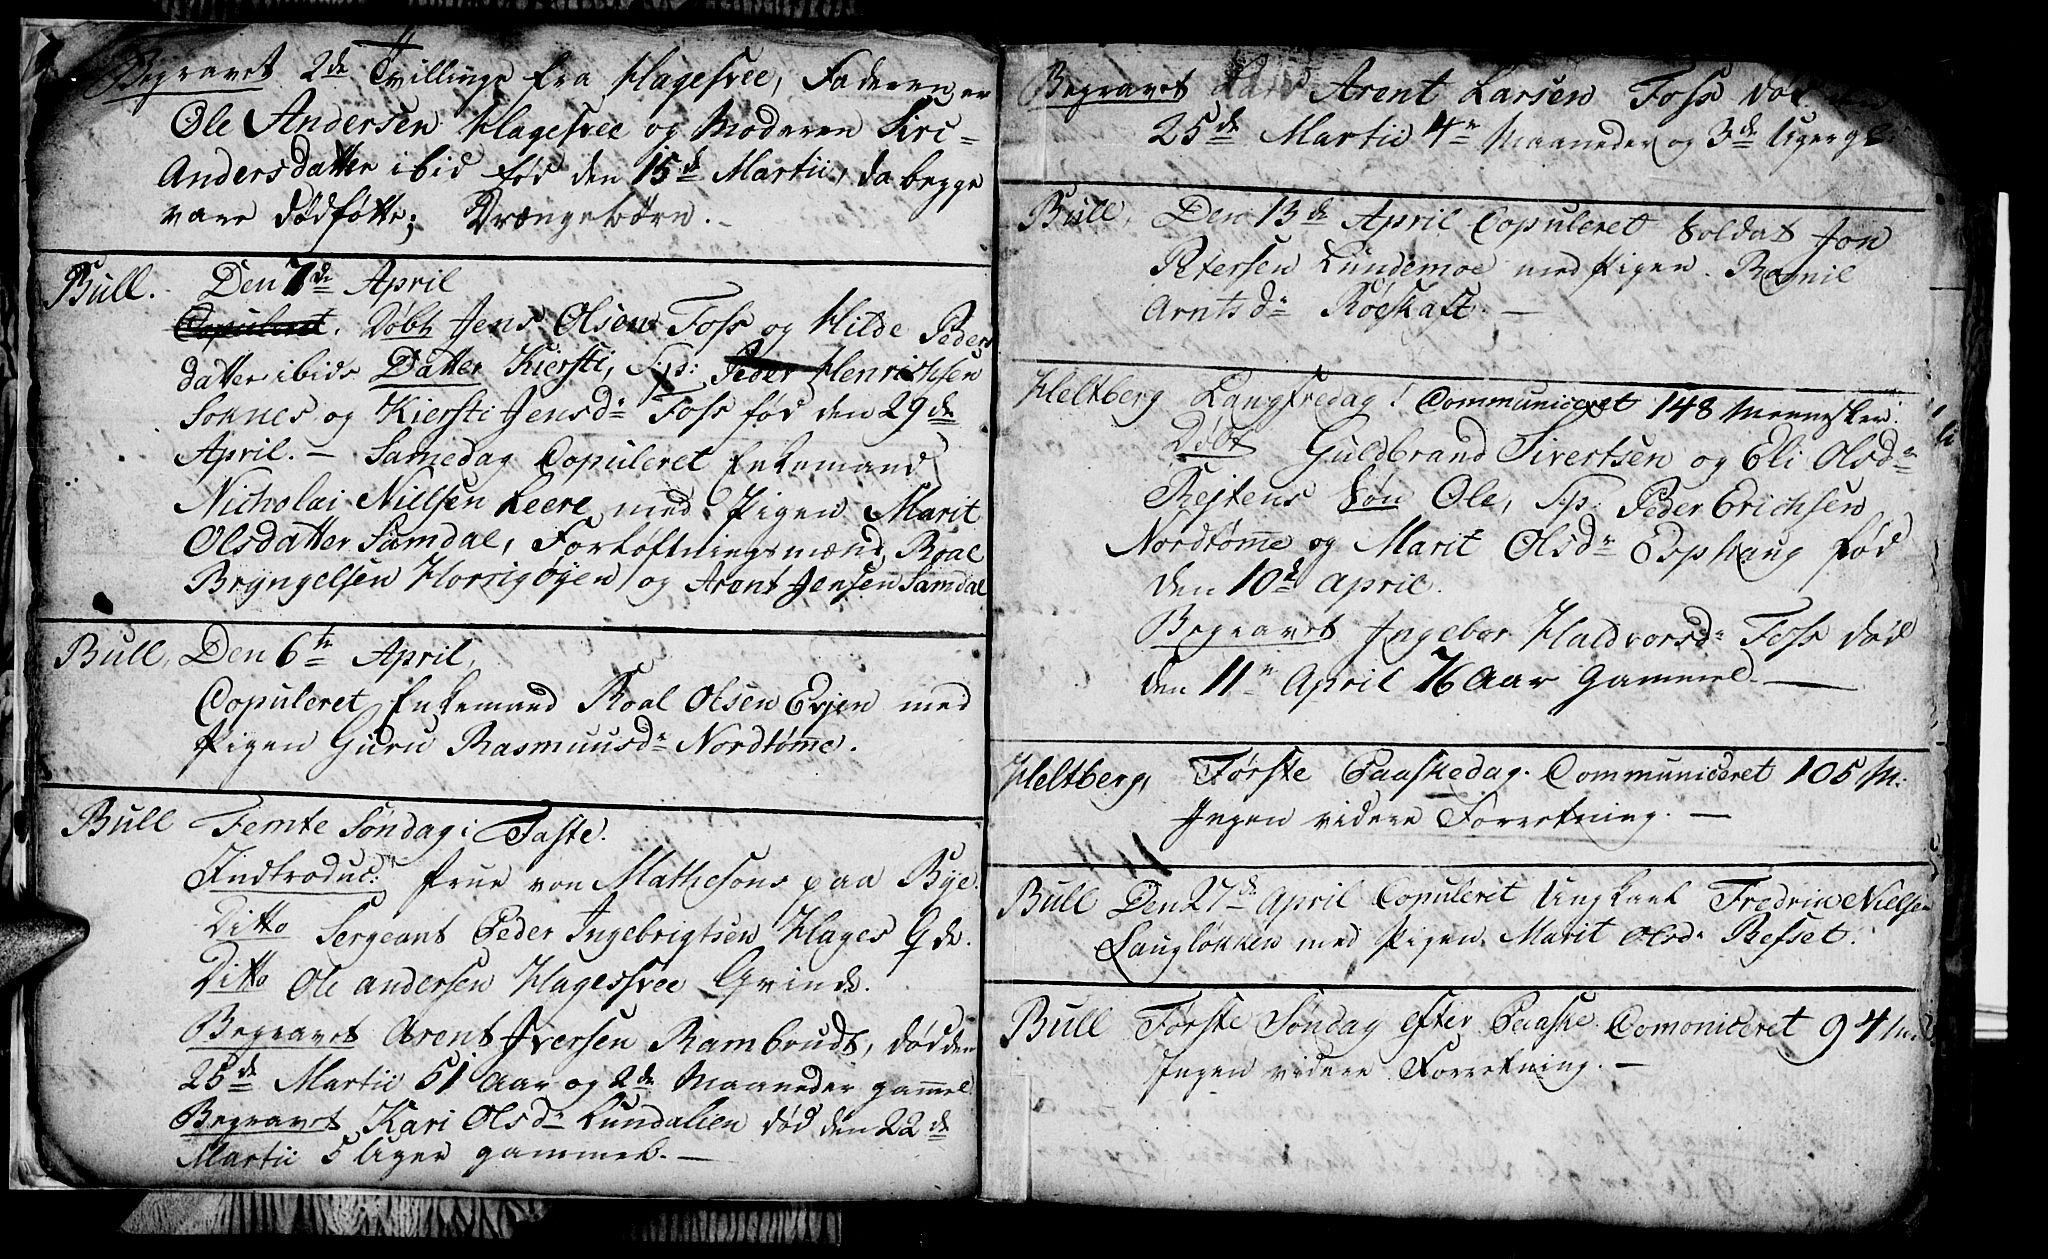 Begravet 2de Tvillinge fra Hagesvee, Faderen er
Ole Andersen Hagesvee og Moderen Siri
Andersdatter ibid fød den 15de Martii, da begge
vare dødføtte; Drængebørn. -
Bull. Den 7de April
Copuleret. Døbt Jens Olsen Foss og Hilde Peders
datter ibid. Datter Kiersti, Sp: Peder Henrichsen
Soknes og Kiersti Jensdr Foss fød den 29de
April. - Samedag Copuleret Enkemand
Nicholai Nielsen Leere med Pigen Marit
Olsdatter Samdal, Forløftningsmænd Roal
Bryngelsen Horrigøyen og Arent Jensen Samdal
Bull, Den 6te April,
Copuleret Enkemand Roal Olsen Evjen med
Pigen Guru Rasmuusdr Nordtømme.
Bull Femte Søndag i Faste.
Indtroduc: Frue von Mathesons paa Bye.
Ditto Sergeant Peder Ingebrigtsen Hages Qde.
Ditto Ole Andersen Hagessvee Qvinde.
Begravet Arent Iversen Rambrudt, død den
25de Martii 51 Aar og 2de Maaneder gammel
Begravet Kari Olsdr Lundalien død den 22de
Martii 5 Uger gammel. -
Begravet Arent Larsen Foss død
25de Martii 4re Maaneder og 3de Uger gl:
Bull, Den 13de April Copuleret Soldat Jon
Petersen Lundemoe med Pigen Ragnil
Arntsdr Røeskaft. -
Heltberg Langfredag! Communiceret 148 Mennesker.
Døbt Guldbrand Sivertsen og Eli Olsdr
Rejtens Søn Ole, Sp: Peder Erichsen
Nordtømme og Marit Olsdr Esphaug fød
den 10de April.
Begravet Ingebor Haldvorsdr Foss død
den 11te April 76 Aar Gammel. -
Heltberg, Første Paaskedag. Communiceret 105 M:
Ingen videre Forretning. -
Bull Den 27de April Copuleret Ungkarl Fredric Nielsen
Laugløkken med Pigen Marit Olsdr Refset.
Bull Første Søndag efter Paaske Comoniceret 94 M:
Ingen videre Forretning. -